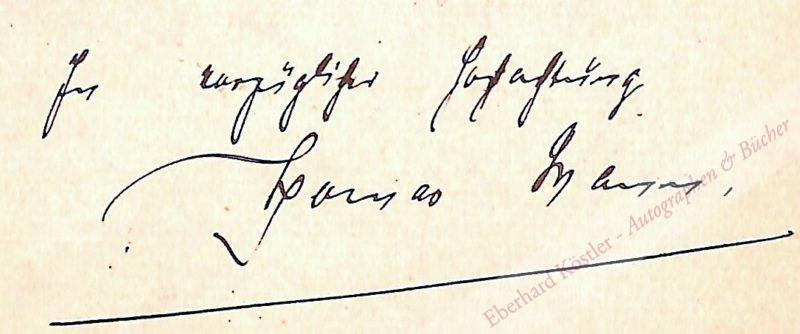 In vorzüglicher Hochachtung
Thomas Mann.
Eberhard Köstler - Autographen & Bücher